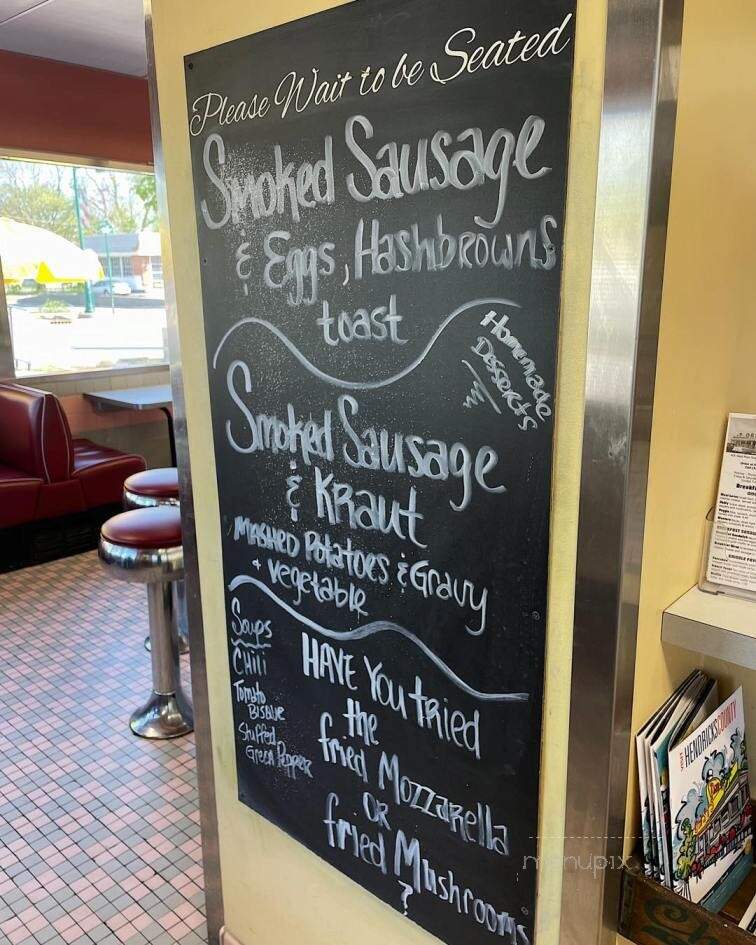 Please Wait to be Seated
Smoked Sausage
& Eggs, Hashbrowns
toast
Homemade
Desserts
Smoked Sausage
& Kraut
Mashed Potatoes & Gravy
+ vegetable
Soups
Chili
Tomato
Bisque
Stuffed
Green Pepper
HAVE You tRied
the
fried Mozzarella
OR
fried Mushrooms
?
HENDRICKS COUNTY
menupix